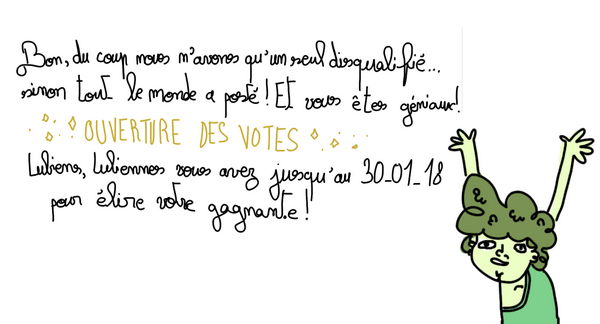 Bon, du coup nous n'avons qu'un seul disqualifié...
sinon tout le monde a posté! Et vous êtes géniaux!
OUVERTURE DES VOTES
Lubiens, Lubiennes vous avez jusqu'au 30_01_18
pour élire votre gagnant.e!